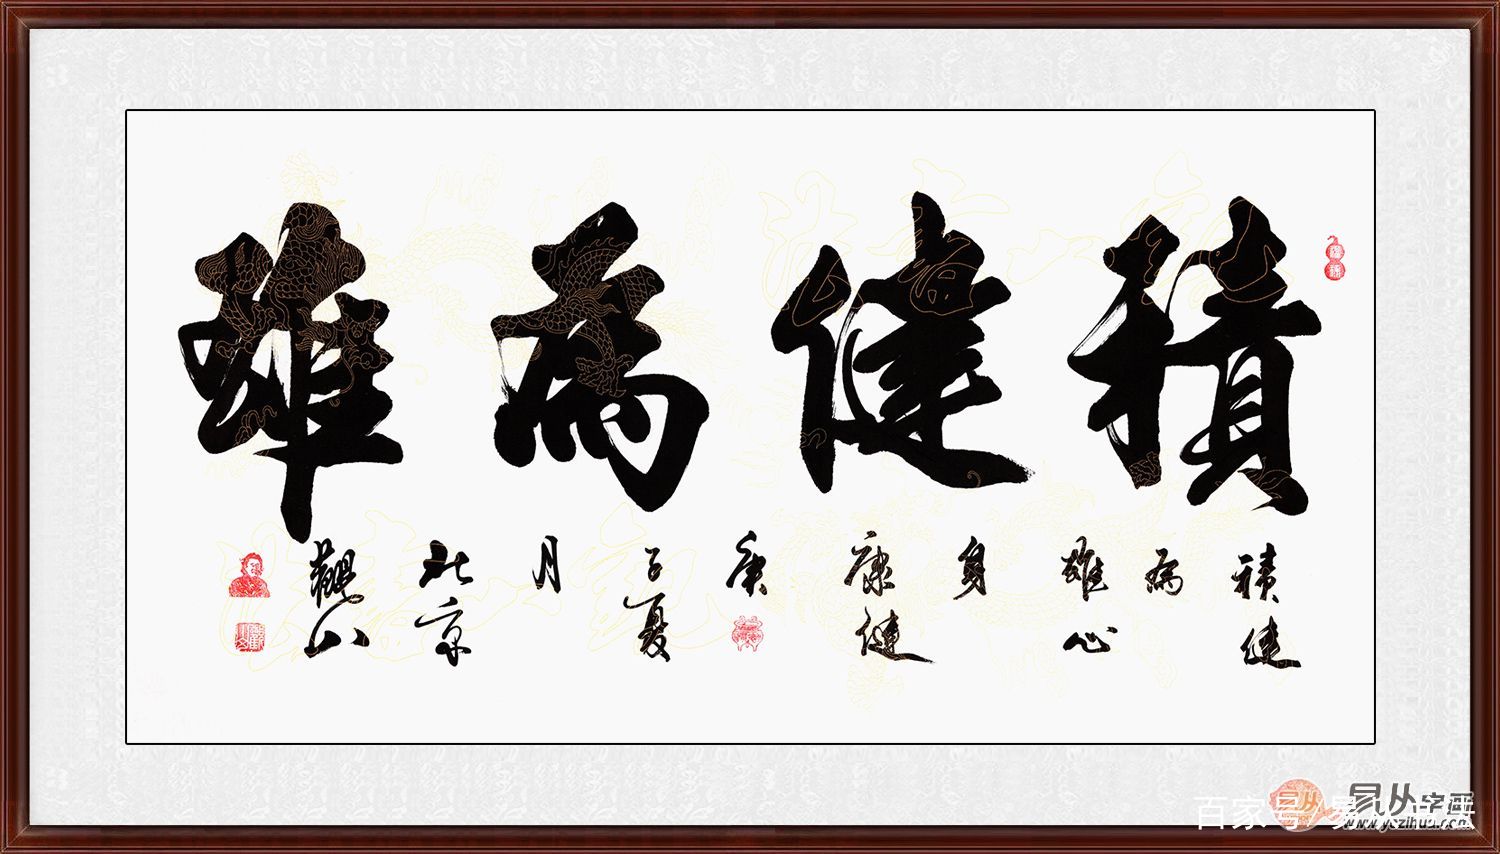 積健為雄
積健
為
雄心
身
康健
庚
子夏
月
北京
觀山
易从字画
www.yczihua.com
百家号